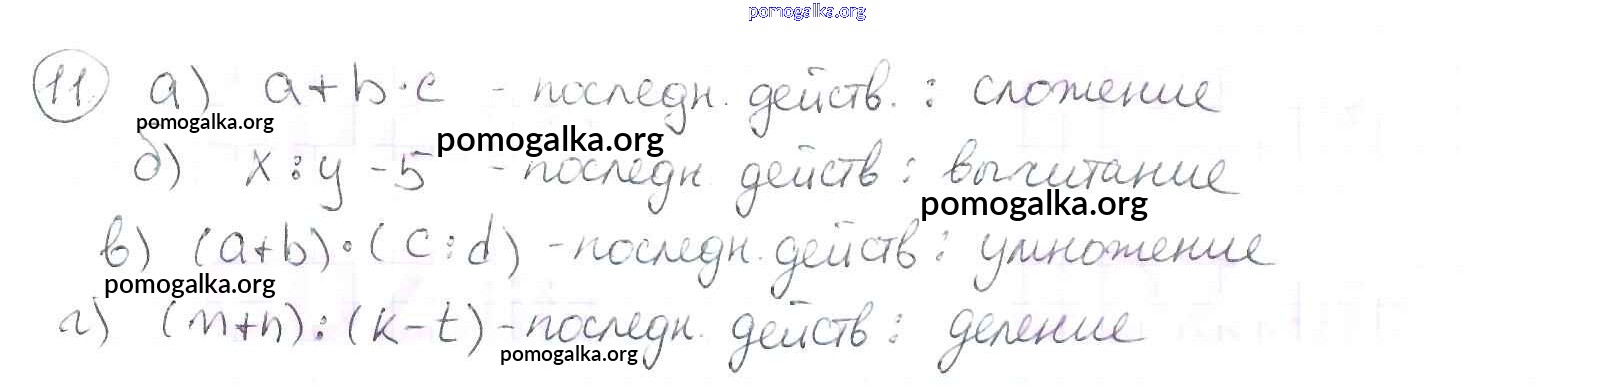 pomogalka.org
11. а) a+b·c - последн. действ. : сложение
pomogalka.org
pomogalka.org
б) x:y-5 - последн действ : вычитание
pomogalka.org
в) (a+b)·(c:d) - последн. действ : умножение
pomogalka.org
г) (m+n):(k-t) - последн. действ : деление
pomogalka.org